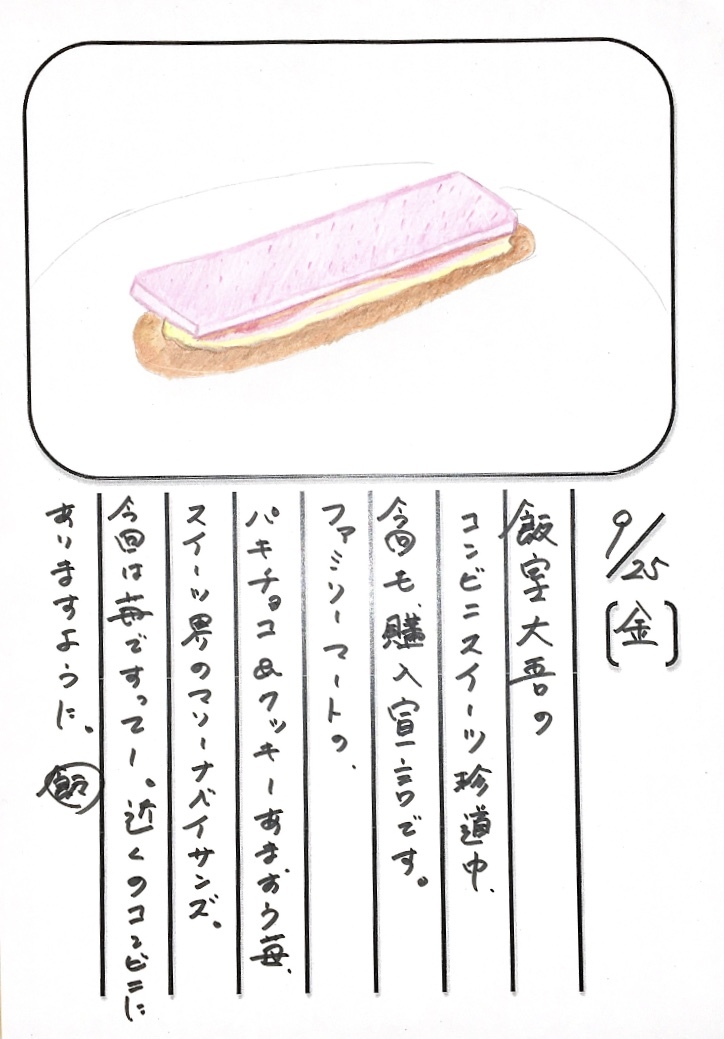 9/25［金］
飯室大吾の
コンビニスイーツ珍道中、
今回も、購入宣言です。
ファミリーマートの、
パキチョコ&クッキーあまおう苺、
スイーツ界のマリーナベイサンズ。
今回は苺ですってー。近くのコンビニに
ありますように。 飯